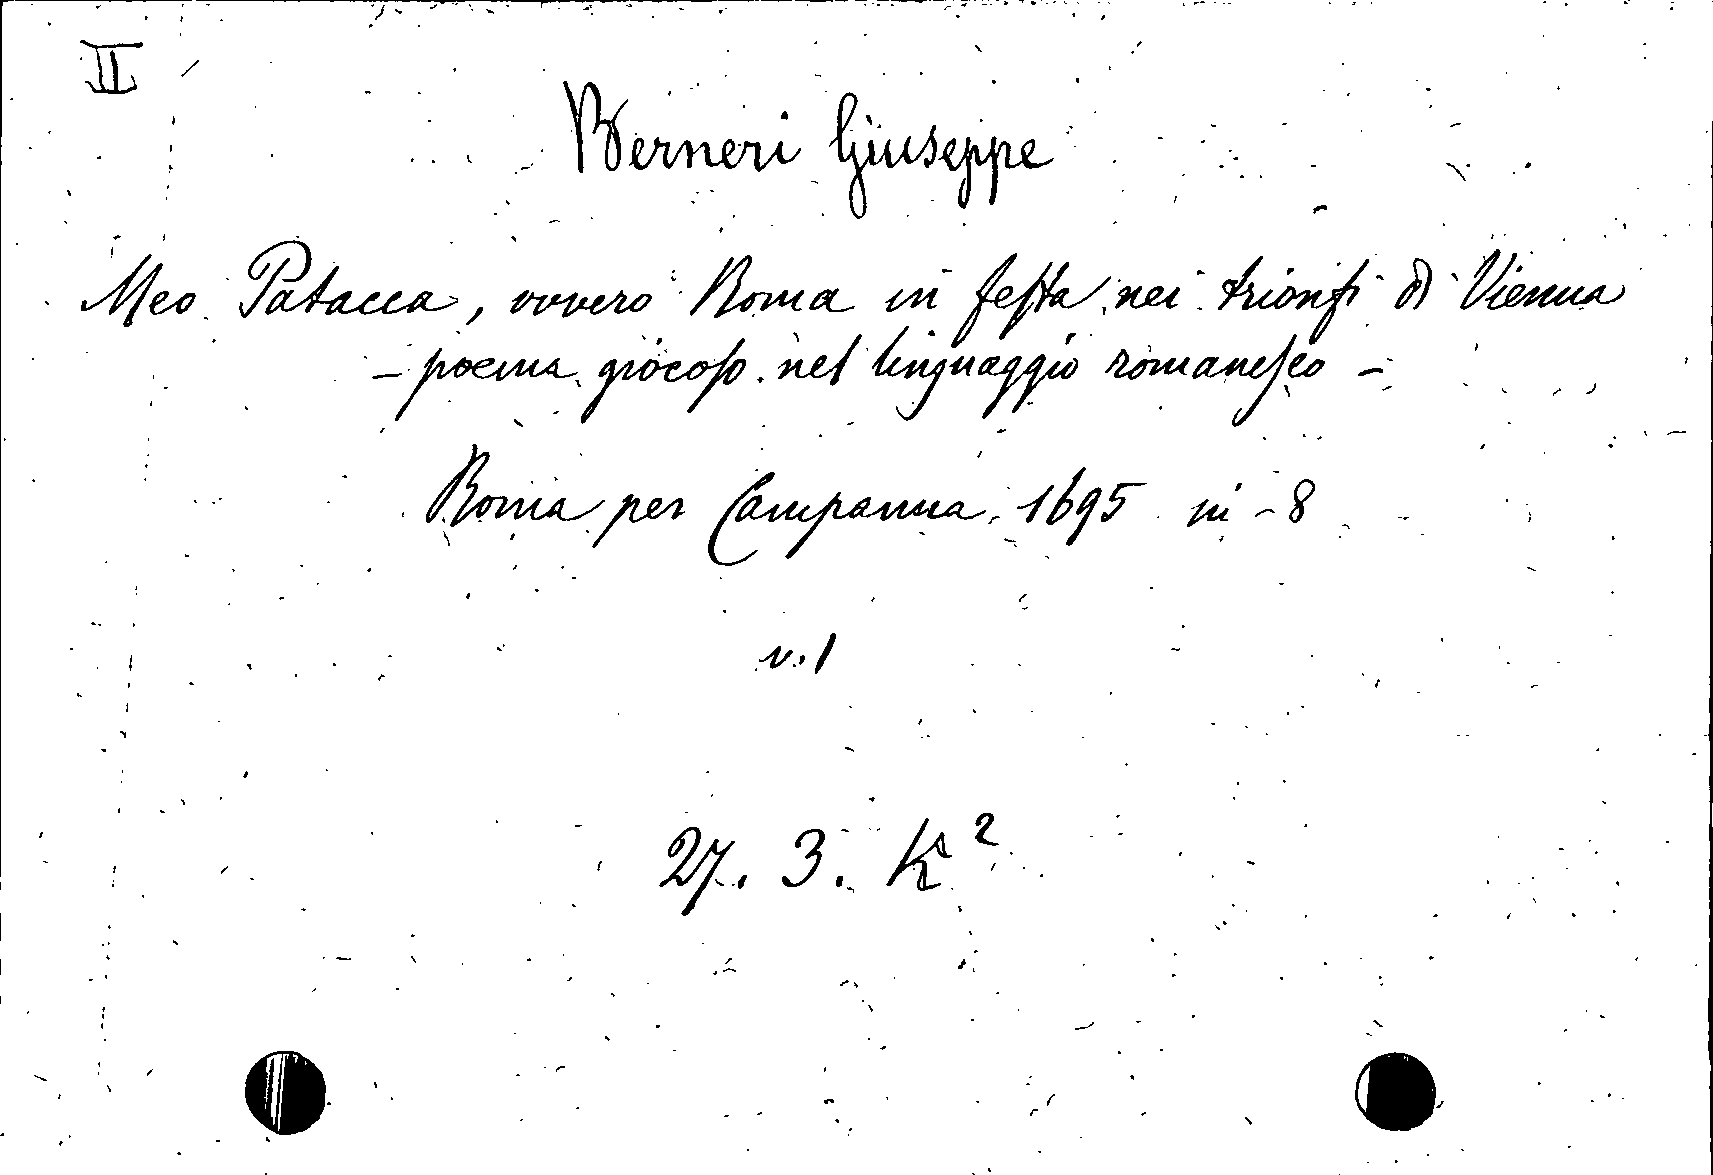 II
Berneri Giuseppe
Meo Patacca, ovvero Roma in festa nei trionfi di Vienna
- poema giocoso nel linguaggio romanesco -
Roma per Campanna 1695 in-8
v. 1
27. 3. K²